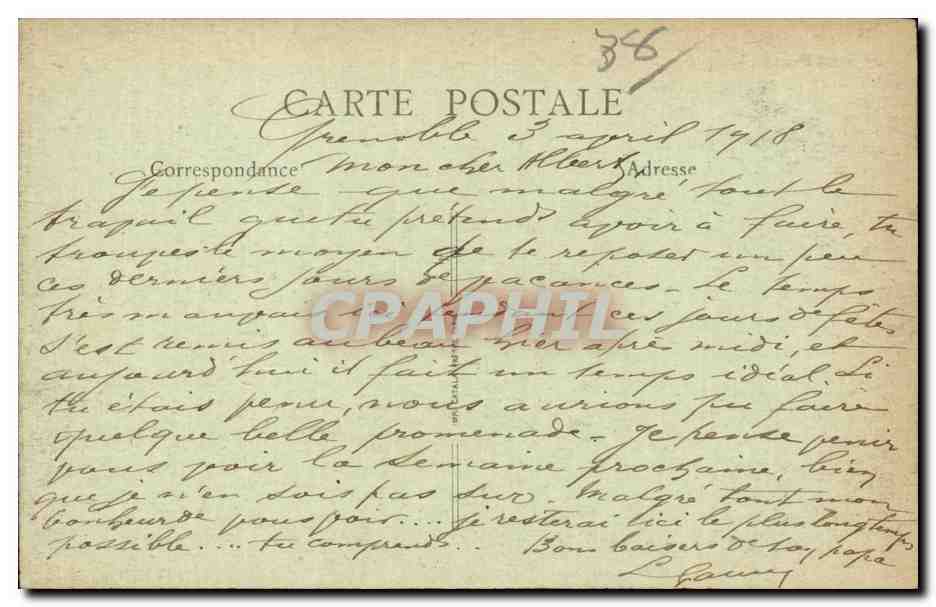 38
CARTE POSTALE
Grenoble 3 april 1918
Correspondance Mon cher Albert, Adresse
Je pense que malgré tout le
travail que tu prétends avoir à faire, tu
trouves le moyen de te reposer un peu
ces derniers jours de vacances. Le temps
très mauvais ici pendant ces jours de fêtes
s'est remis au beau hier après midi, et
aujourd'hui il fait un temps idéal. Si
tu étais venu, nous aurions pu faire
quelque belle promenade. Je pense venir
vous voir la semaine prochaine, bien
que je n'en sois pas sur. Malgré tout mon
bonheur de vous voir.... je resterai ici le plus longtemps
possible.... tu comprends.. Bons baisers de ton papa
CPAPHIL